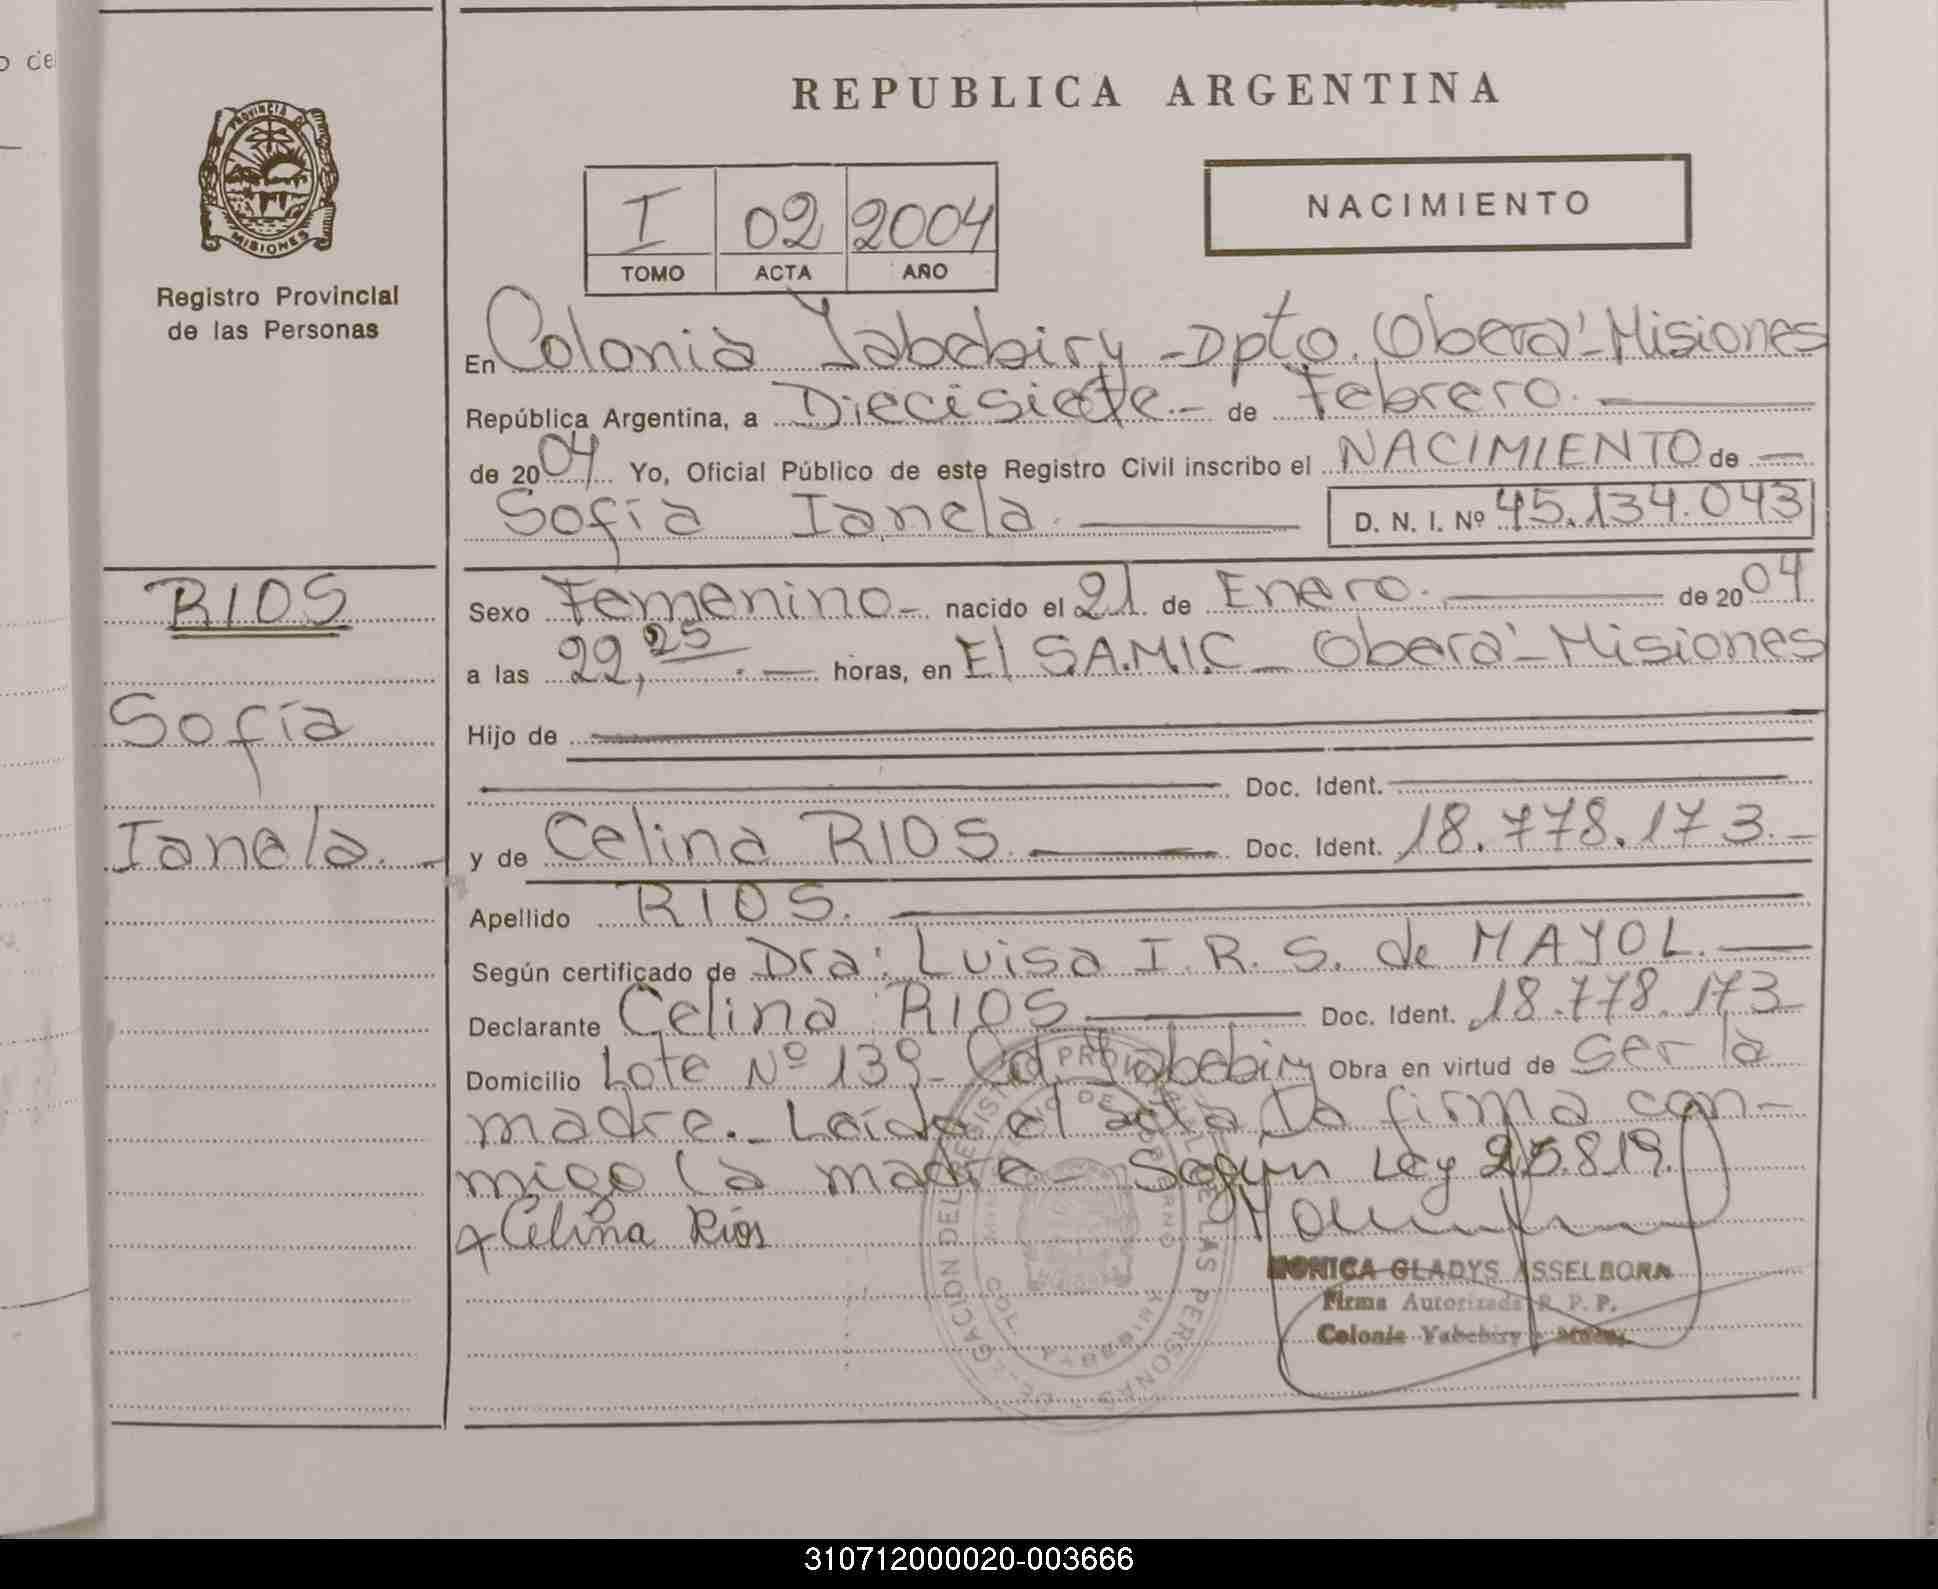 REPUBLICA ARGENTINA
PROVINCIA DE
MISIONES
Registro Provincial
de las Personas
I 02 2004
TOMO ACTA AÑO
NACIMIENTO
En Colonia Yabebiry - Dpto. Oberá - Misiones
República Argentina, a Diecisiete.- de Febrero.
de 2004 Yo, Oficial Público de este Registro Civil inscribo el NACIMIENTO de
Sofía Ianela. D. N. I. Nº 45.134.043
RIOS
Sofía
Ianela.-
Sexo Femenino - nacido el 21 de Enero. de 2004
a las 22,25 horas, en El S.A.M.I.C - Oberá - Misiones
Hijo de
Doc. Ident.
y de Celina RIOS. Doc. Ident. 18.778.173.-
Apellido RIOS.
Según certificado de Dra: Luisa I. R. S. de MAYOL.
Declarante Celina RIOS. Doc. Ident. 18.778.173-
Domicilio Lote Nº 139- Col. Yabebiry Obra en virtud de ser la
madre.- Leída el acta la firma con-
migo la madre - Según Ley 25.819.
Celina Rios
MONICA GLADYS ASSELBORN
Firma Autorizada R. P. P.
Colonia Yabebiry - 
310712000020-003666